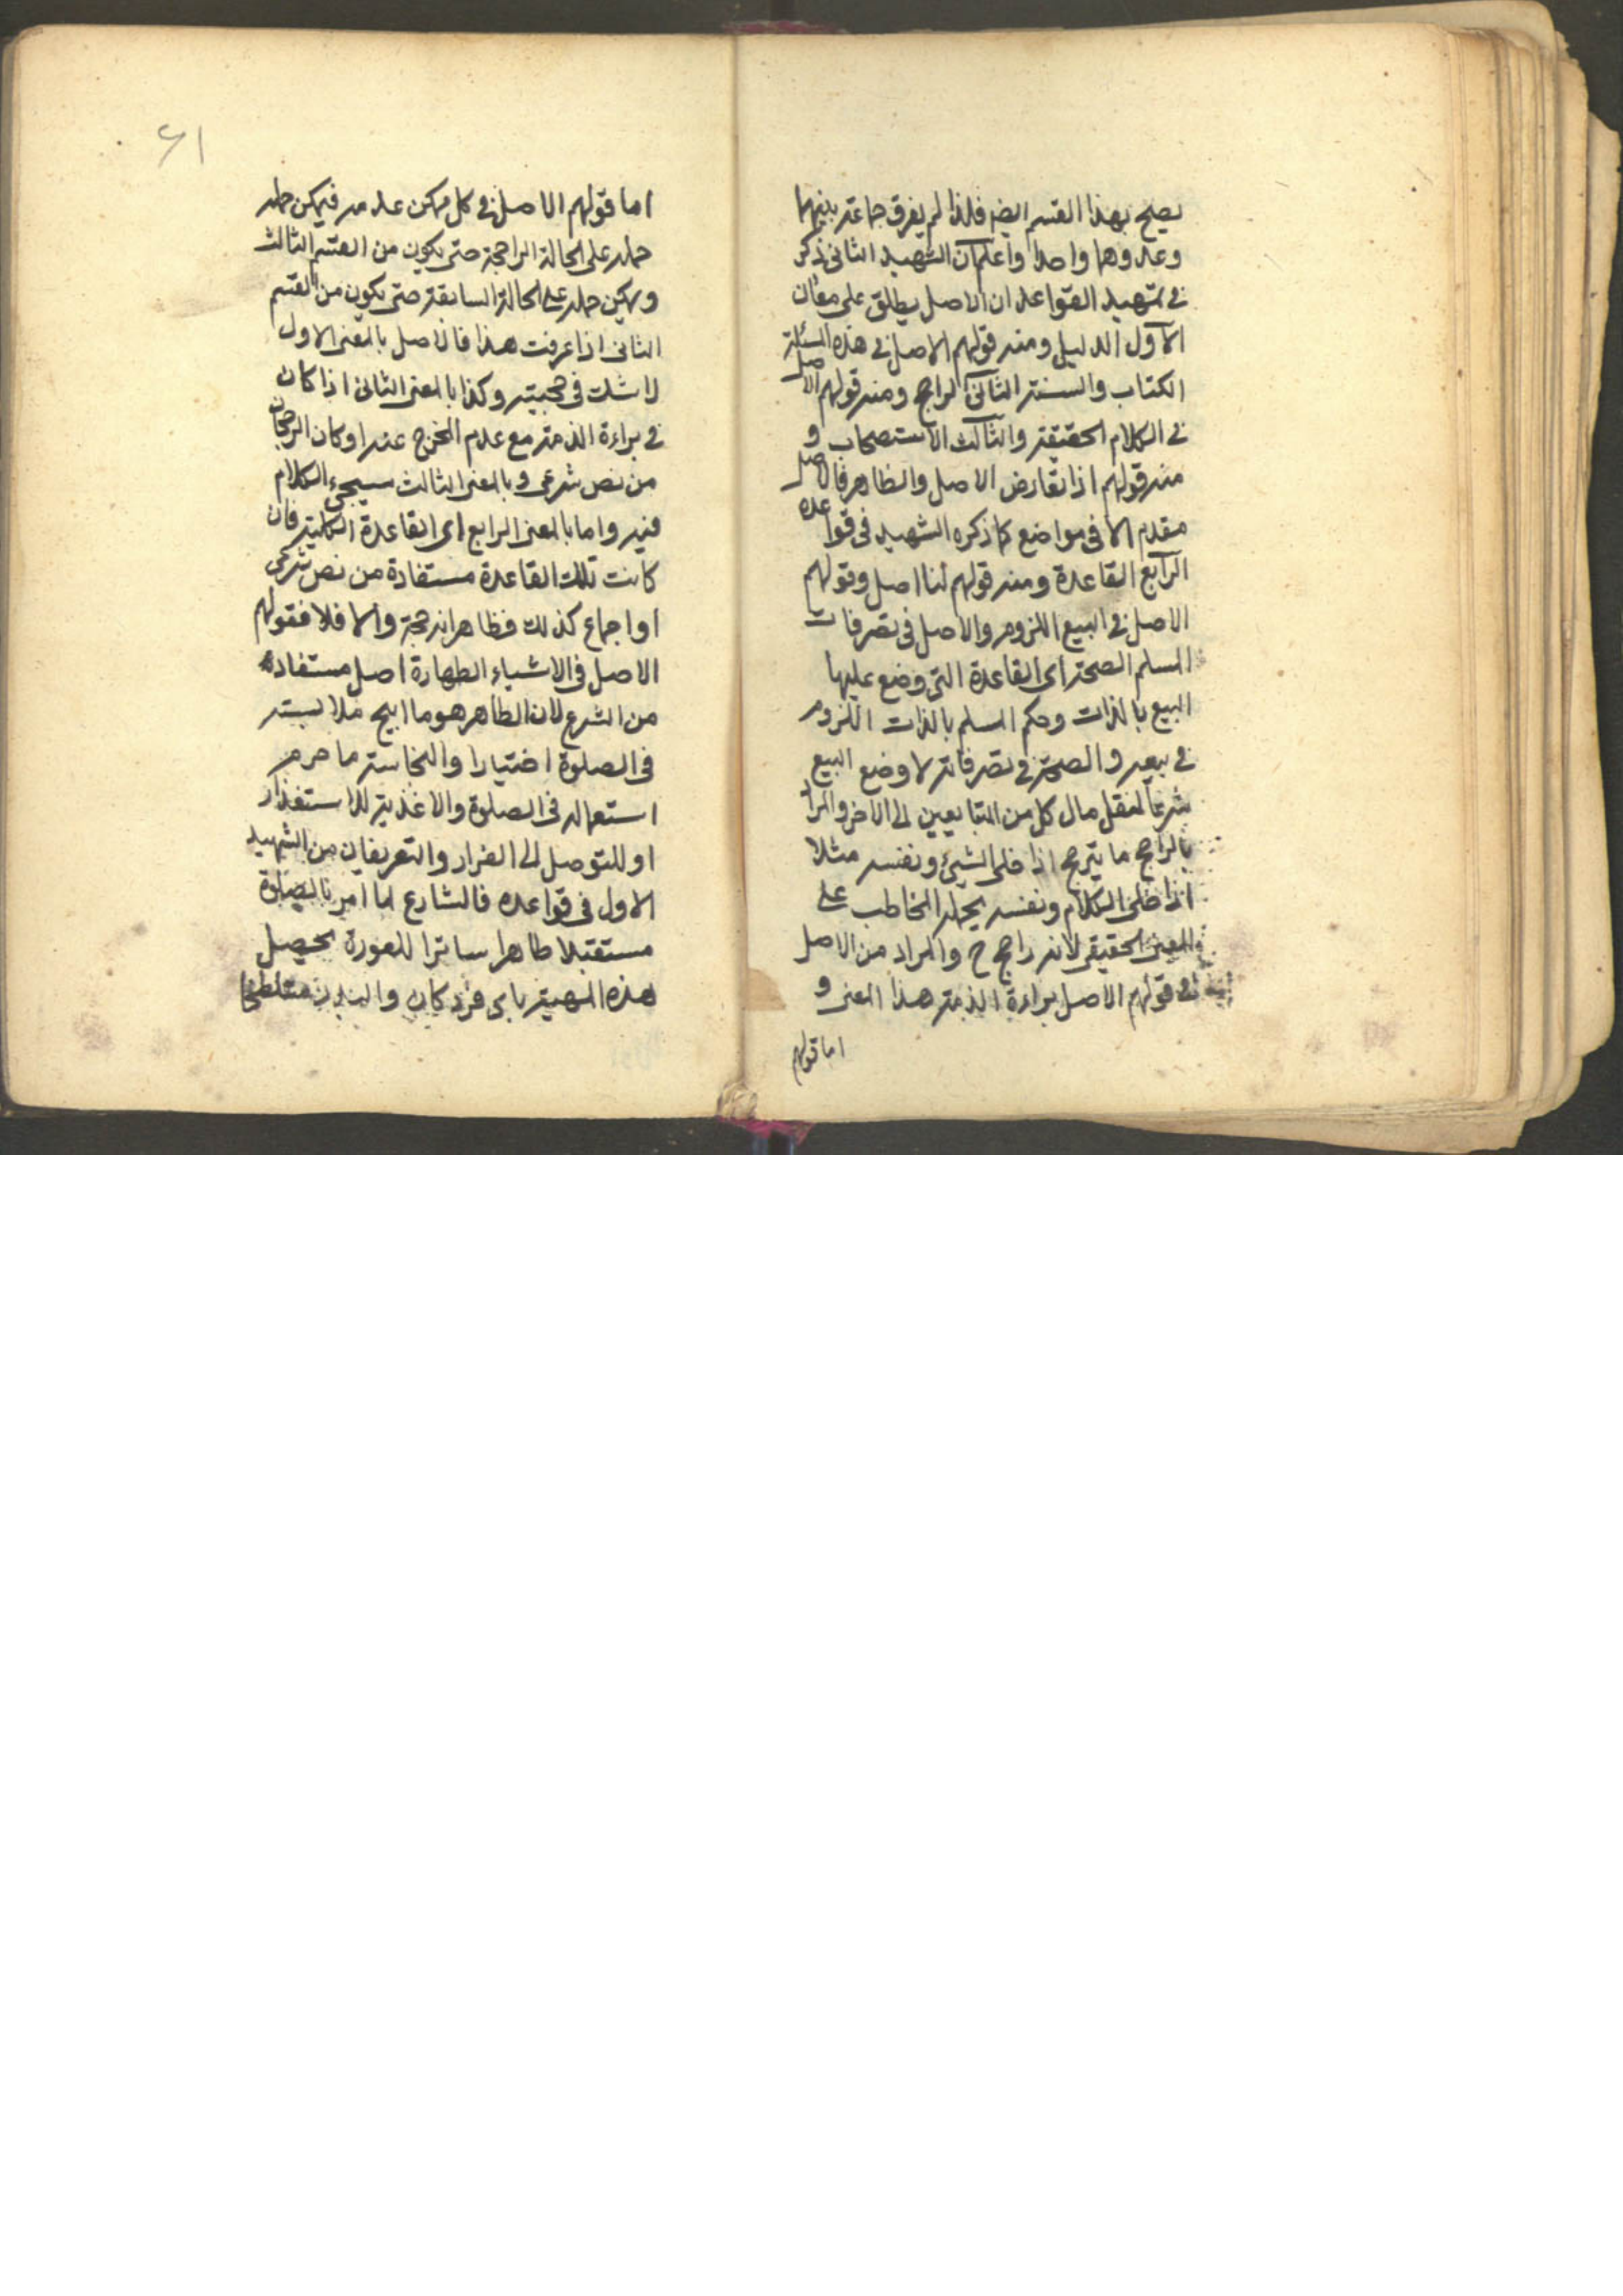 يصح بهذا القسم ايضا فلذا لم يفرق جماعة بينهما
وعدوهما واحدا واعلم ان الشهيد الثاني ذكر
في تمهيد القواعد ان الاصل يطلق على معان
الاول الدليل ومنه قولهم الاصل في هذه المسئلة
الكتاب والسنة الثاني الراجح ومنه قولهم الاصل
في الكلام الحقيقة والثالث الاستصحاب و
منه قولهم اذا تعارض الاصل والظاهر فالاصل
مقدم الا في مواضع كما ذكره الشهيد في قواعده
الرابع القاعدة ومنه قولهم لنا اصل وقولهم
الاصل في البيع اللزوم والاصل في تصرفات
المسلم الصحة اى القاعدة التي وضع عليها
البيع بالذات وحكم المسلم بالذات اللزوم
في بيعه والصحة في تصرفاته لا وضع البيع
شرعا لنقل مال كل من المتبايعين الى الاخر والمراد
بالراجح ما يترجح اذا خلى الشيئ ونفسه مثلا
اذا خلى الكلام ونفسه يحمله المخاطب على
المعنى الحقيقي لانه راجح ح والمراد من الاصل
في قولهم الاصل براءة الذمة هذا المعنى و
اما قولهم
٤١
اما قولهم الاصل في كل ممكن عدمه فيمكن حمله
حمله على الحالة الراجحة حتى يكون من القسم الثالث
ويمكن حمله على الحالة السابقة حتى يكون من القسم
الثاني اذا عرفت هذا فالاصل بالمعنى الاول
لا شك في حجيته وكذا بالمعنى الثاني اذا كان
في براءة الذمة مع عدم المخرج عنه او كان الرجحان
من نص شرعي وبالمعنى الثالث سيجيء الكلام
فيه واما بالمعنى الرابع اى القاعدة الكلية فان
كانت تلك القاعدة مستفادة من نص شرعي
او اجماع كذلك فظاهر انه حجة والا فلا فقولهم
الاصل في الاشياء الطهارة اصل مستفاده
من الشرع لان الطاهر هو ما ابيح ملابسته
في الصلوة اختيارا والنجاسة ما حرم
استعماله في الصلوة والاغذية للاستقذار
او للتوصل الى الفرار والتعريفان من الشهيد
الاول في قواعده فالشارع لما امر بالصلوة
مستقبلا طاهرا ساترا للعورة يحصل
هذه المهية باى فرد كان والبدن متلطخا